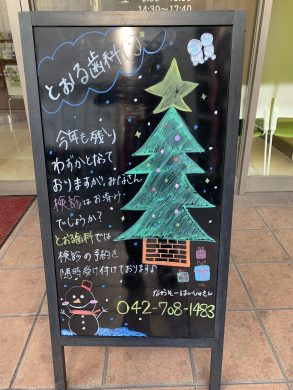 14:30～17:40
とおる歯科
今年も残り
わずかとなって
おりますが、みなさん
検診はお済み
でしょうか?
とおる歯科では
検診の予約を
随時受け付けております♪
042-708-1483